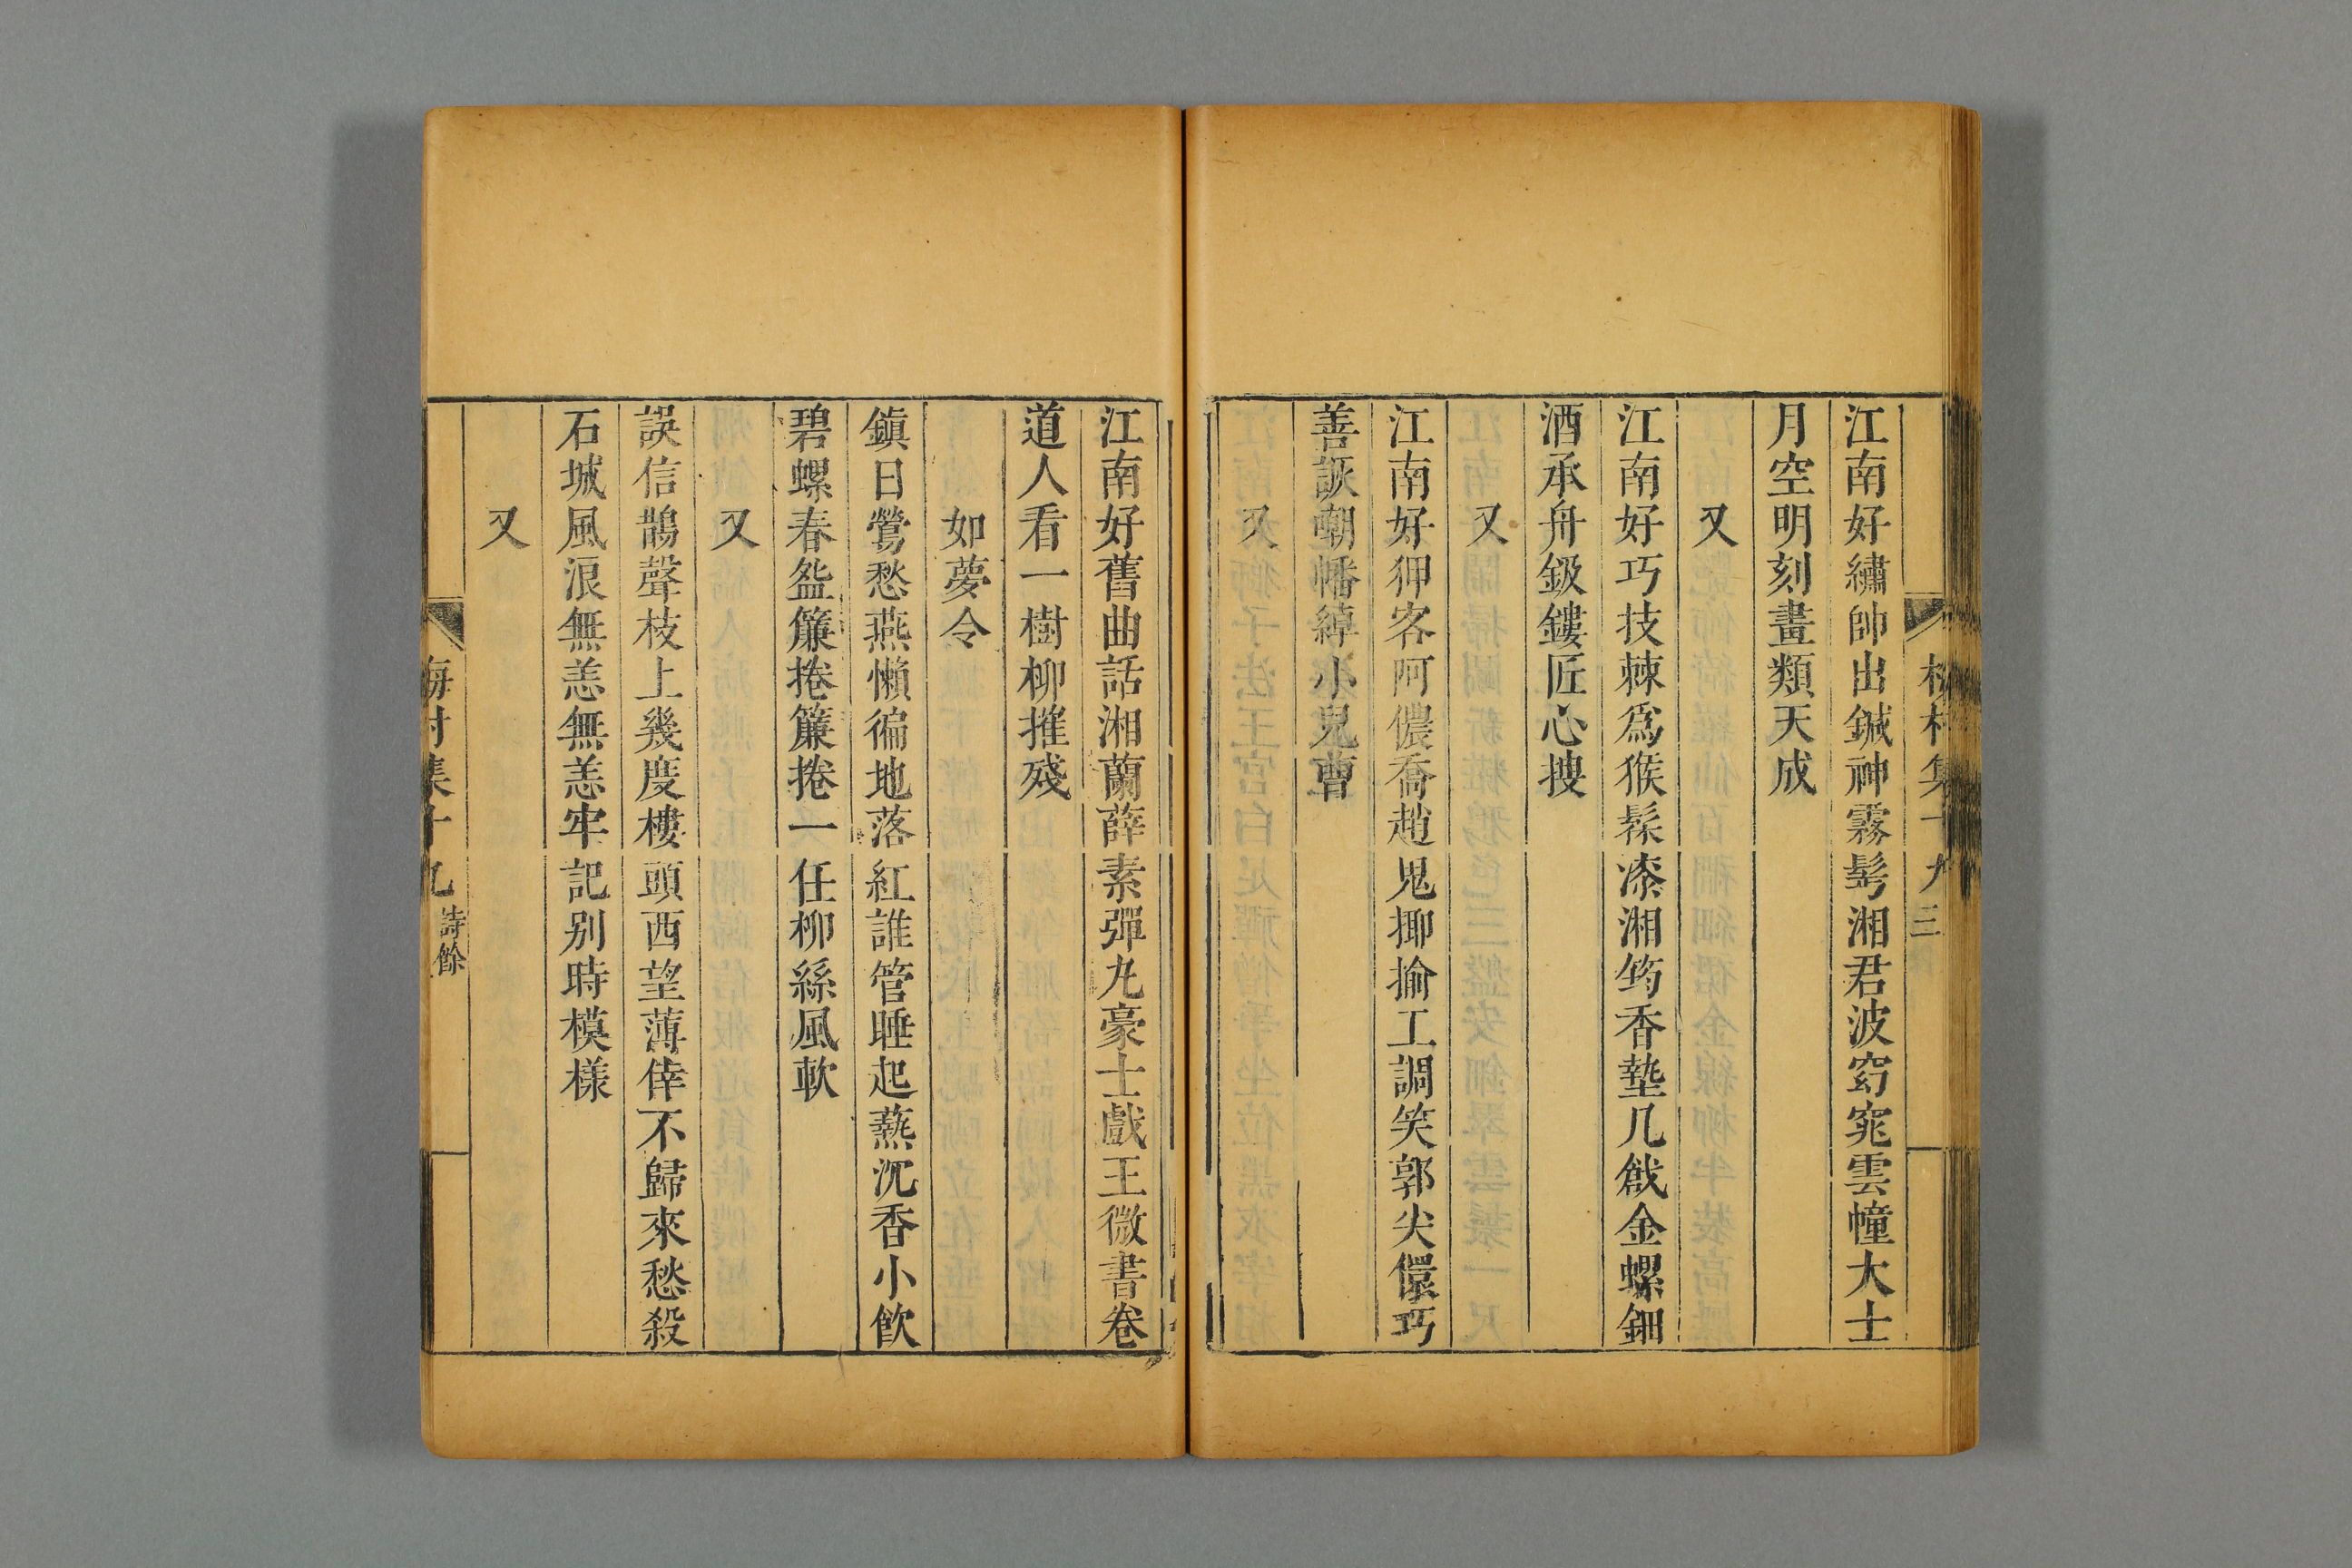 村集十九 三
江南好繡帥出鍼神霧髩湘君波窈窕雲幢大士
月空明刻畫類天成
又
江南好巧技棘爲猴髹漆湘筠香墊几戧金螺鈿
酒承舟鈒鏤匠心搜
又
江南好狎客阿儂喬趙鬼揶揄工調笑郭尖儇巧
善詼嘲幡綽小兒曹
又
江南好舊曲話湘蘭薛素彈丸豪士戲王微書卷
道人看一樹柳摧殘
如夢令
鎭日鶯愁燕懶徧地落紅誰管睡起爇沉香小飮
碧螺春盌簾捲簾捲一任柳絲風軟
又
誤信鵲聲枝上幾度樓頭西望薄倖不歸來愁殺
石城風浪無恙無恙牢記别時模樣
又
梅村集十九 詩餘